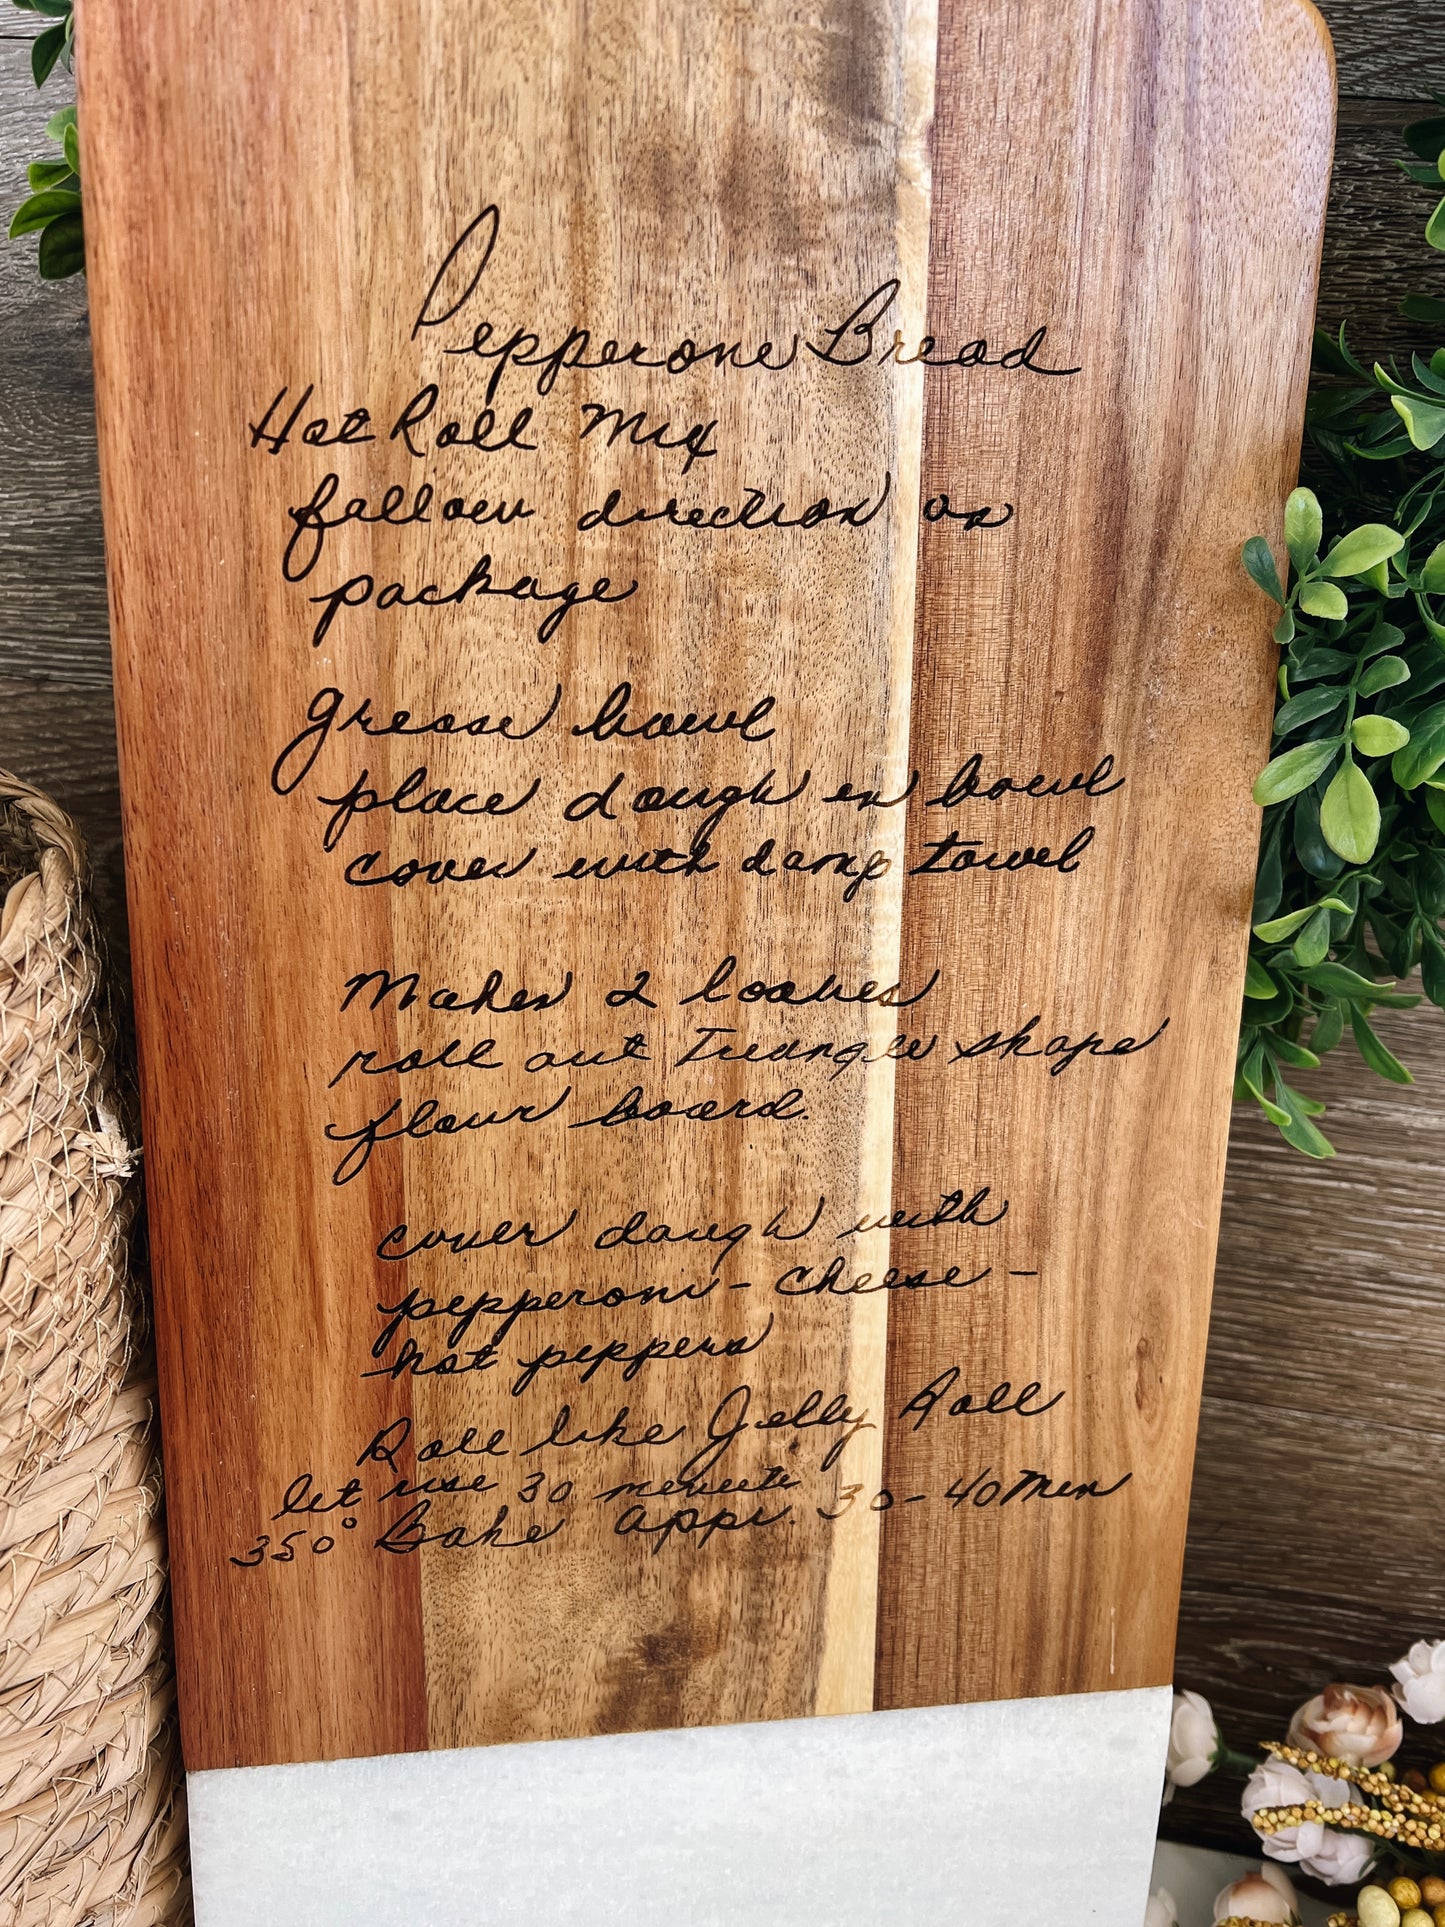 Pepperone Bread
Hot Roll Mix
follow direction on
package
grease bowl
place dough in bowl
cover with damp towel
Makes 2 loaves
roll out Triangle shape
flour board.
cover dough with
pepperoni - cheese -
hot peppers
Roll like Jelly Roll
let rise 30 minutes
350° Bake appr. 30-40 Min